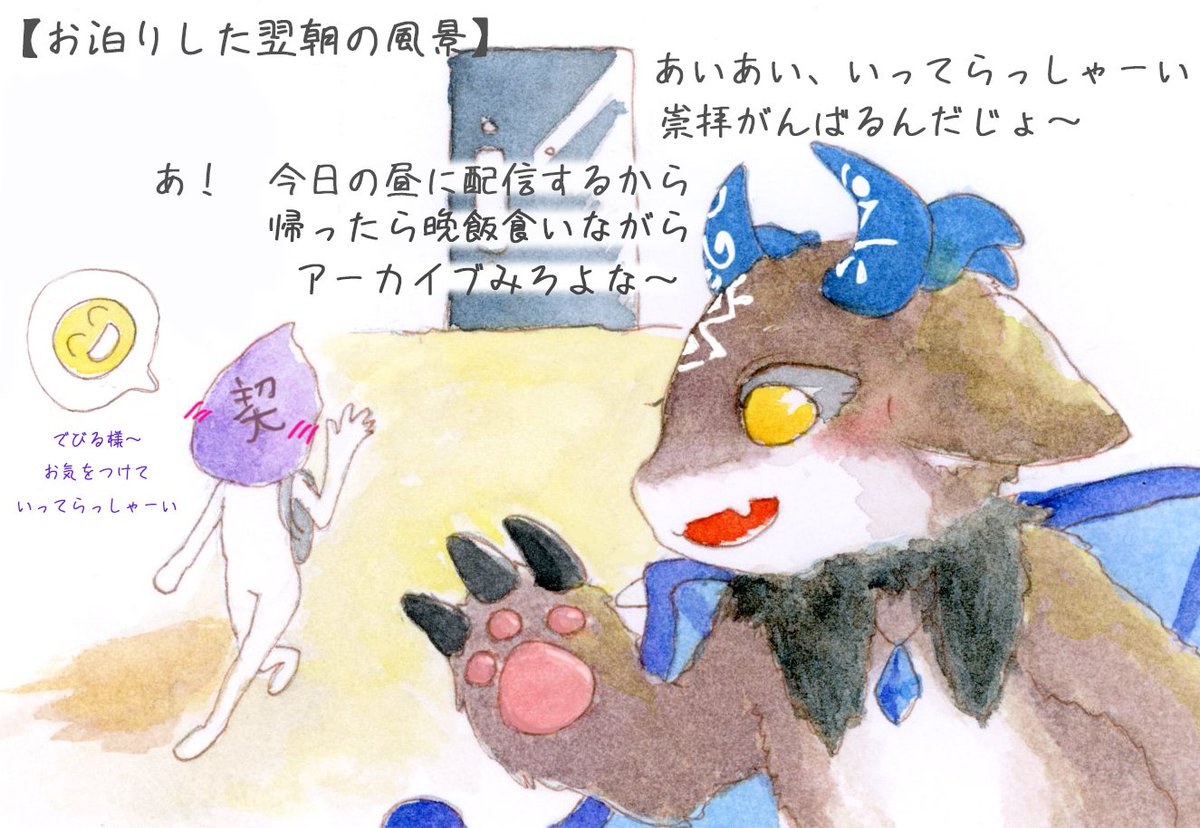 【お泊りした翌朝の風景】
あいあい、いってらっしゃーい
崇拝がんばるんだじょ～
あ！　今日の昼に配信するから
帰ったら晩飯食いながら
アーカイブみろよな～
契
でびる様～
お気をつけて
いってらっしゃーい